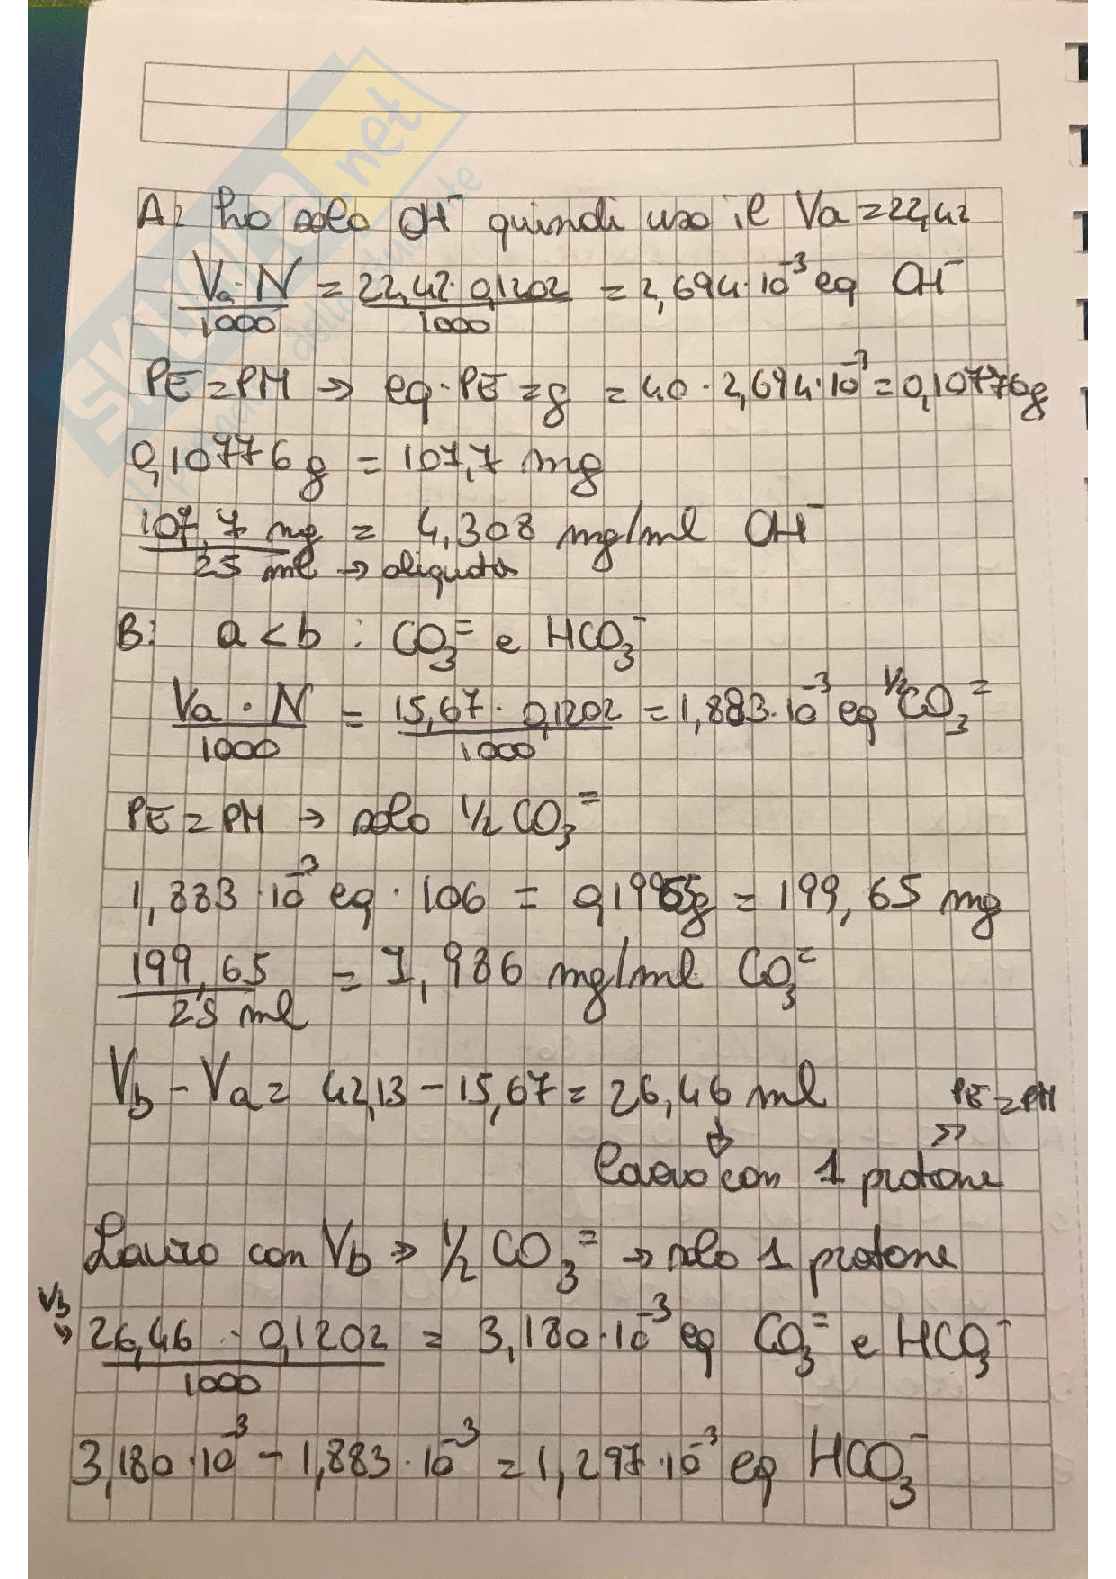 A: ho solo OH⁻ quindi uso il Va = 22,42
Va · N / 1000 = 22,42 · 0,1202 / 1000 = 2,694 · 10⁻³ eq OH⁻
PE = PM → eq · PE = g = 40 · 2,694 · 10⁻³ = 0,10776g
0,10776 g = 107,7 mg
107,7 mg / 25 ml → aliquota = 4,308 mg/ml OH⁻
B: a < b : CO₃⁼ e HCO₃⁻
Va · N / 1000 = 15,67 · 0,1202 / 1000 = 1,883 · 10⁻³ eq ½ CO₃⁼
PE = PM → solo ½ CO₃⁼
1,883 · 10⁻³ eq · 106 = 0,19965g = 199,65 mg
199,65 / 25 ml = 7,986 mg/ml CO₃⁼
Vb - Va = 42,13 - 15,67 = 26,46 ml
PE = PM
↓ »
lavoro con 1 protone
Lavoro con Vb → ½ CO₃⁼ → solo 1 protone
Vb → 26,46 · 0,1202 / 1000 = 3,180 · 10⁻³ eq CO₃⁼ e HCO₃⁻
3,180 · 10⁻³ - 1,883 · 10⁻³ = 1,297 · 10⁻³ eq HCO₃⁻
SKUOLA.net